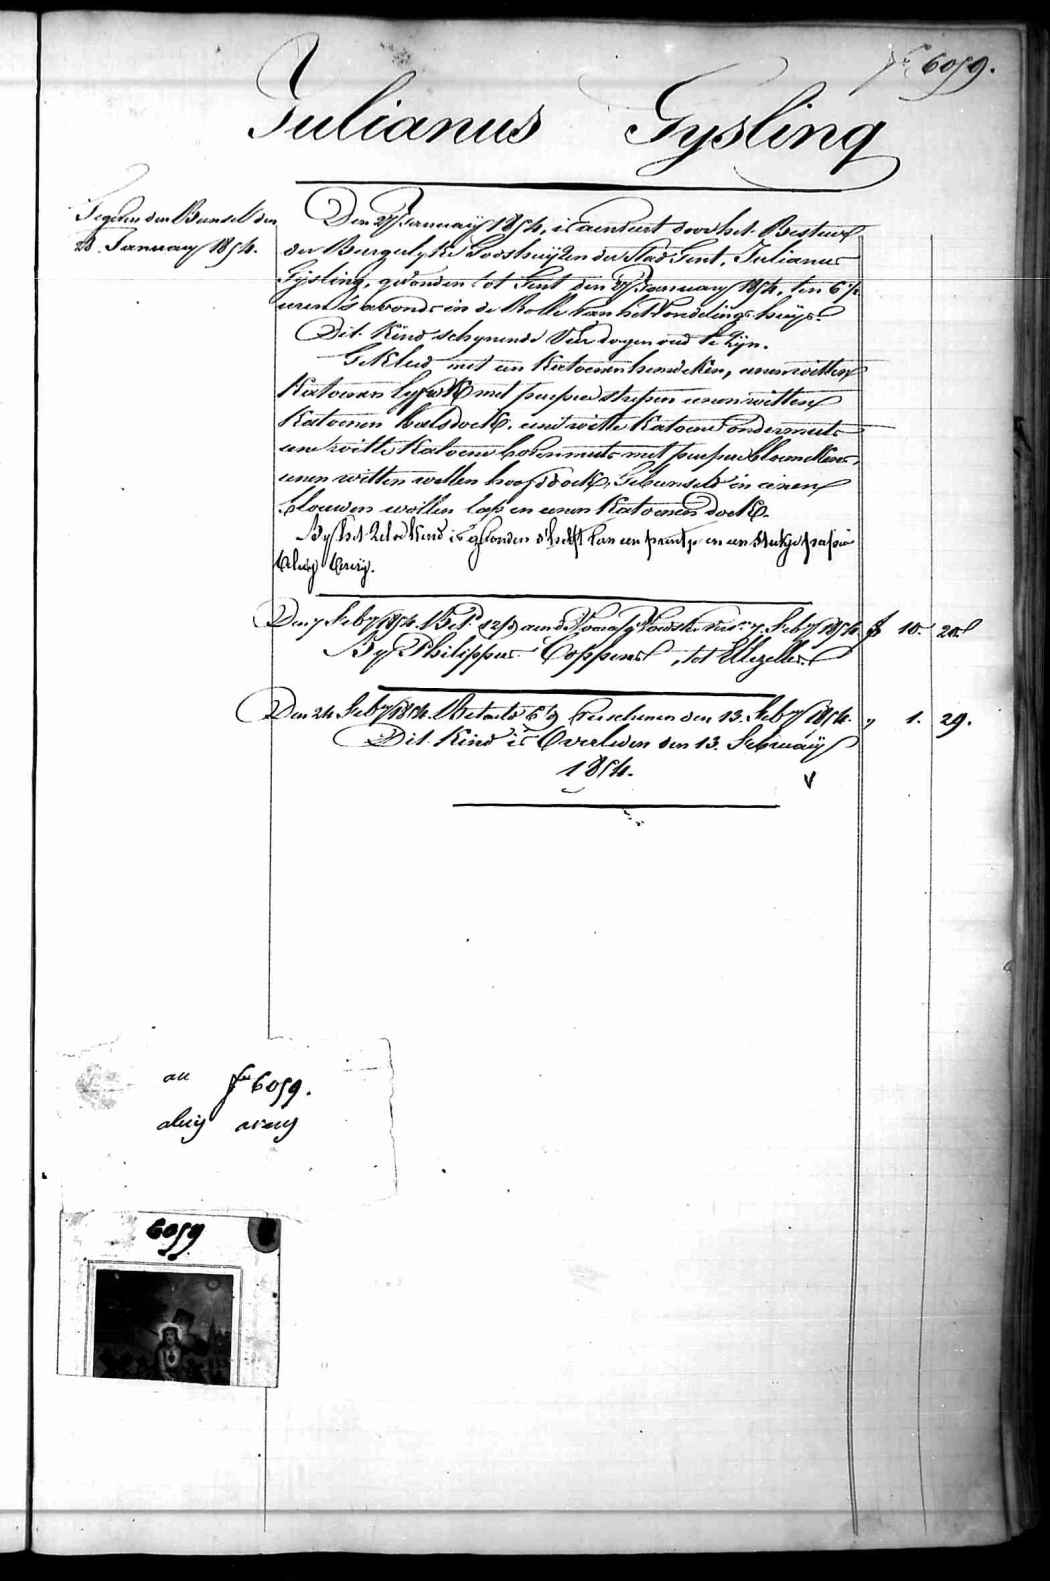 fº 6059.
Julianus Gysling
Gegeven den Bunsell den
28. January 1854.
Den 27 January 1854, is aenveert door het Bestuer
der Burgerlyke Godshuyzen der Stad Gent, Julianus
Gysling, gevonden tot Gent den 27 January 1854, ten 6 ½
uren 's avonds in de Rolle van het Vondelings huys.
Dit Kind schynende vier dagen oud te zyn.
Gekleed met een Katoenen hemdeken, eenen witten
Katoenen lyfdoek met purpere strepen eenen witten
Katoenen halsdoek, eene witte Katoene ondermuts
eene witte Katoene bovenmuts met purpere bloemekens,
eenen witten wollen hoofddoek, Gebunseld in eenen
blauwen wollen lap en eenen Katoenen doek.
By het zelve Kind is gevonden d'helft van een prentje en een stukje papier
aluy aruy.
Den 7 Feby 1854. Bet. aen de Voorsz 7. Feby 1854. f 10. 20.
By Philippus Coppens, tot Elezelles.
Den 24 Feby 1854. Betaeld verschenen den 13. Feby 1854. " 1. 29.
Dit Kind is Overleden den 13. February
1854.
au fº 6059.
aluy aruy
6059